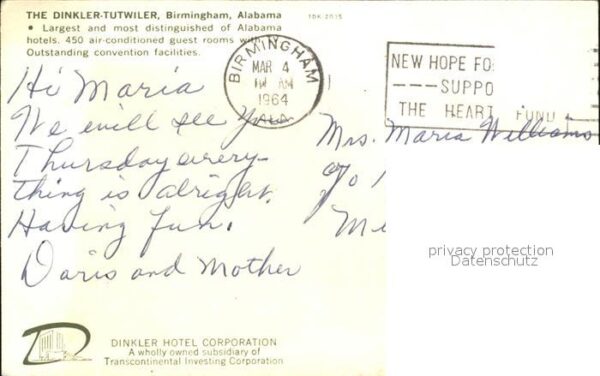 THE DINKLER-TUTWILER, Birmingham, Alabama
• Largest and most distinguished of Alabama
hotels. 450 air-conditioned guest rooms with
Outstanding convention facilities.
10K 2015
BIRMINGHAM
MAR 4
AM
1964
ALA
NEW HOPE FO
---SUPPO
THE HEART FUND
Hi Maria
We will see you
Thursday every-
thing is alright.
Having fun.
Doris and Mother
Mrs. Maria Williams
Mi
privacy protection
Datenschutz
D
DINKLER HOTEL CORPORATION
A wholly owned subsidiary of
Transcontinental Investing Corporation